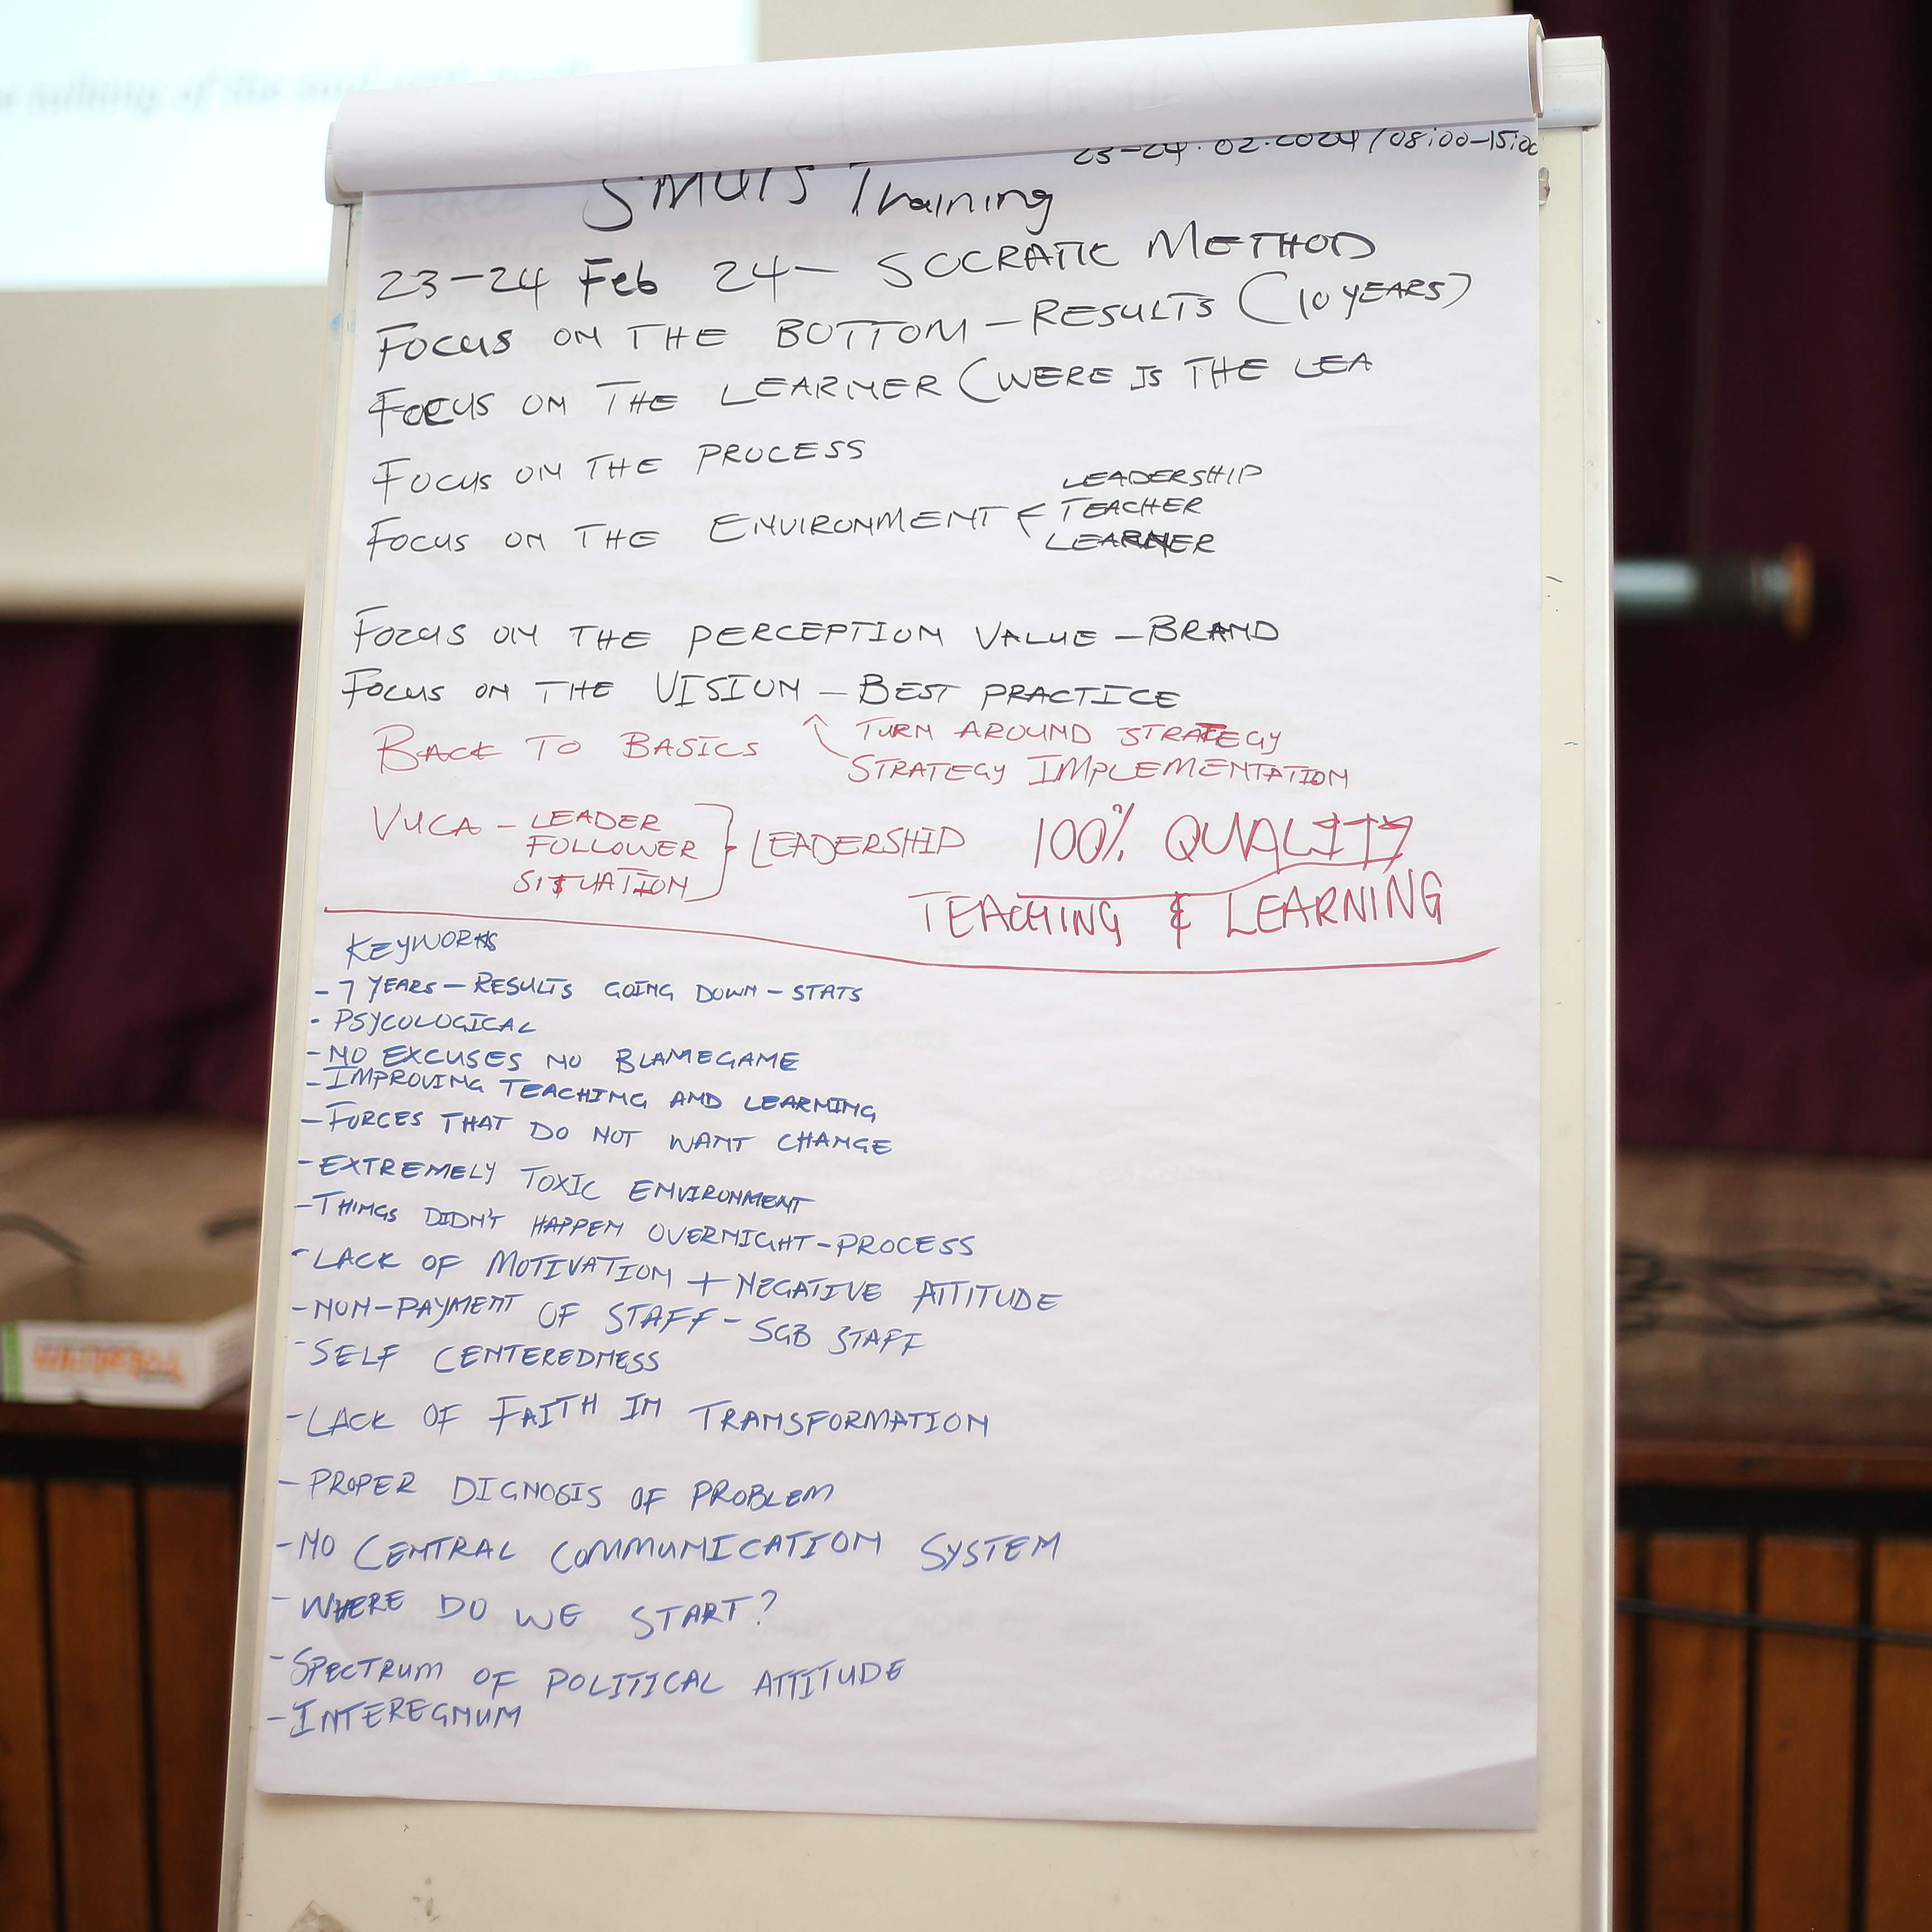 talking of the and
23-24.02.2024/08:00-15:00
SMUTS Training
23-24 Feb 24- SOCRATIC METHOD
FOCUS ON THE BOTTOM - RESULTS (10 YEARS)
FOCUS ON THE LEARNER (WERE IS THE LEA
FOCUS ON THE PROCESS
LEADERSHIP
FOCUS ON THE ENVIRONMENT < TEACHER
LEARNER
FOCUS ON THE PERCEPTION VALUE - BRAND
FOCUS ON THE VISION - BEST PRACTICE
BACK TO BASICS ↖ TURN AROUND STRATEGY
STRATEGY IMPLEMENTATION
VUCA - LEADER
FOLLOWER } LEADERSHIP 100% QUALITY
SITUATION
TEACHING & LEARNING
KEYWORKS
- 7 YEARS - RESULTS GOING DOWN - STATS
- PSYCOLOGICAL
- NO EXCUSES NO BLAMEGAME
- IMPROVING TEACHING AND LEARNING
- FORCES THAT DO NOT WANT CHANGE
- EXTREMELY TOXIC ENVIRONMENT
- THINGS DIDN'T HAPPEN OVERNIGHT - PROCESS
- LACK OF MOTIVATION + NEGATIVE ATTITUDE
- NON-PAYMENT OF STAFF - SGB STAFF
- SELF CENTEREDNESS
- LACK OF FAITH IN TRANSFORMATION
- PROPER DIGNOSIS OF PROBLEM
- NO CENTRAL COMMUNICATION SYSTEM
- WHERE DO WE START?
- SPECTRUM OF POLITICAL ATTITUDE
- INTEREGNUM